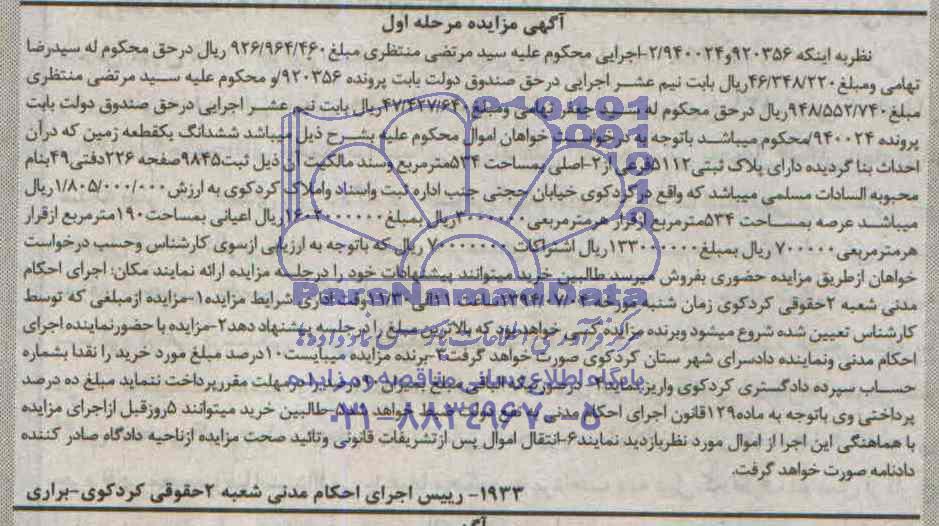 آگهی مزایده مرحله اول
نظربه اینکه ۹۲۰۳۵۶و۲/۹۴۰۰۲۴-اجرایی محکوم علیه سید مرتضی منتظری مبلغ۹۲۶/۹۶۴/۴۶۰ ریال درحق محکوم له سیدرضا
تهامی ومبلغ۴۶/۳۴۸/۲۲۰ریال بابت نیم عشر اجرایی درحق صندوق دولت بابت پرونده ۹۲۰۳۵۶/و محکوم علیه سید مرتضی منتظری
مبلغ۹۴۸/۵۵۲/۷۴۰ریال درحق محکوم له سید جعفر تهامی ومبلغ۴۷/۴۲۷/۶۴۰ریال بابت نیم عشر اجرایی درحق صندوق دولت بابت
پرونده ۹۴۰۰۲۴/محکوم میباشد باتوجه به درخواست خواهان اموال محکوم علیه بشرح ذیل میباشد ششدانگ یکقطعه زمین که درآن
احداث بنا گردیده دارای پلاک ثبتی۵۱۱۲فرعی از۲-اصلی بمساحت ۵۳۴مترمربع وسند مالکیت آن ذیل ثبت۹۸۴۵صفحه ۲۲۶دفتی۴۹بنام
محبوبه السادات مسلمی میباشد که واقع درکردکوی خیابان حجتی جنب اداره ثبت واسناد واملاک کردکوی به ارزش۱/۸۰۵/۰۰۰/۰۰۰ریال
میباشد عرصه بمساحت ۵۳۴مترمربع ازقرار هرمترمربعی۳۰۰۰۰۰۰ریال بمبلغ۱۶۰۲۰۰۰۰۰۰ریال اعیانی بمساحت۱۹۰مترمربع ازقرار
هرمترمربعی۷۰۰۰۰۰ ریال بمبلغ۱۳۳۰۰۰۰۰۰ریال اشتراکات ۷۰۰۰۰۰۰۰ ریال که باتوجه به ارزیابی ازسوی کارشناس وحسب درخواست
خواهان ازطریق مزایده حضوری بفروش میرسد طالبین خرید میتوانند پیشنهادات خود را درجلسه مزایده ارائه نمایند مکان: اجرای احکام
مدنی شعبه ۲حقوقی کردکوی زمان شنبه مورخه ۱۳۹۴/۰۷/۰۴ساعت ۱۱الی۱۱/۳۰وقت اداری شرایط مزایده۱-مزایده ازمبلغی که توسط
کارشناس تعیین شده شروع میشود وبرنده مزایده کسی خواهدبود که بالاترین مبلغ را درجلسه پیشنهاد دهد۲-مزایده با حضورنماینده اجرای
احکام مدنی ونماینده دادسرای شهر ستان کردکوی صورت خواهد گرفت۳-برنده مزایده میبایست۱۰درصد مبلغ مورد خرید را نقدا بشماره
حساب سپرده دادگستری کردکوی واریزنماید۴-درصورتیکه الباقی مبلغ بمیزان ۹۰درصدرا درمهلت مقررپرداخت ننماید مبلغ ده درصد
پرداختی وی باتوجه به ماده۱۲۹قانون اجرای احکام مدنی به نفع دولت ضبط خواهد شد۵-طالبین خرید میتوانند ۵روزقبل ازاجرای مزایده
با هماهنگی این اجرا از اموال مورد نظربازدید نمایند۶-انتقال اموال پس ازتشریفات قانونی وتائید صحت مزایده ازناحیه دادگاه صادر کننده
دادنامه صورت خواهد گرفت.
۱۹۳۳- رییس اجرای احکام مدنی شعبه ۲حقوقی کردکوی-براری
ParsNamadData
پایگاه اطلاع رسانی مناقصه و مزایده
۰۲۱-۸۸۳۴۹۶۷۰-۵